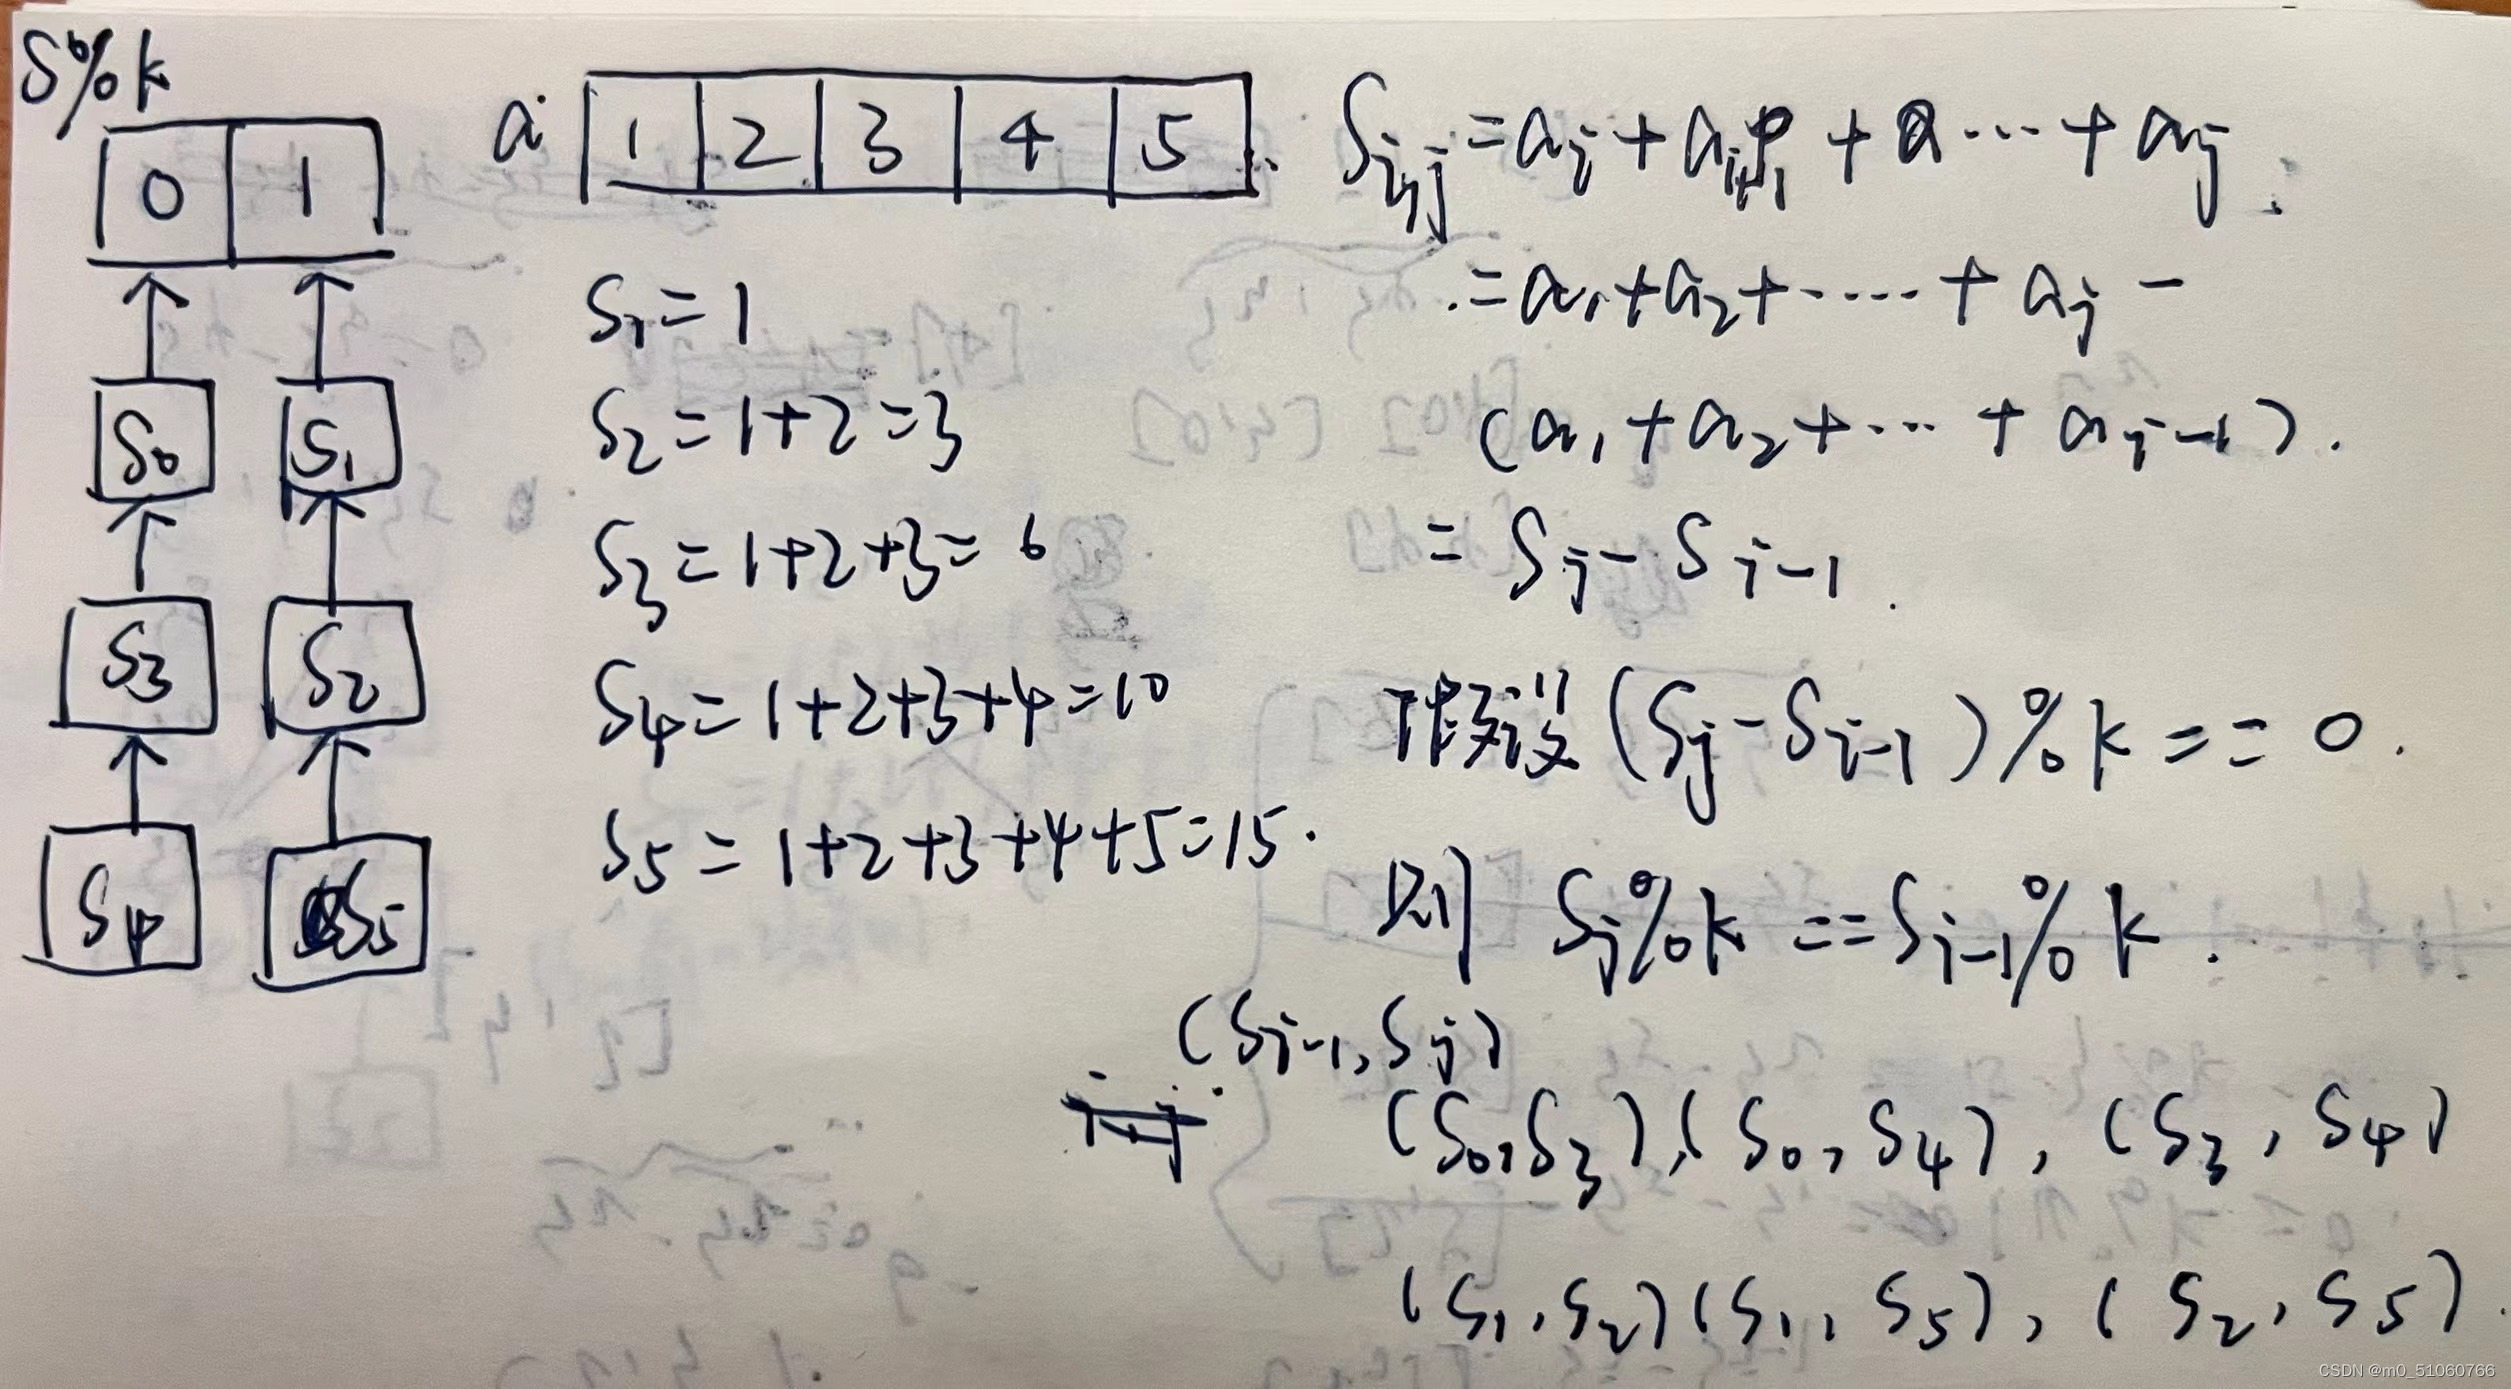 S%k
0 1
S0 S1
S3 S2
S4 S5
a: 1 2 3 4 5
S1=1
S2=1+2=3
S3=1+2+3=6
S4=1+2+3+4=10
S5=1+2+3+4+5=15.
Si,j=ai+ai+1+a…+aj
=a1+a2+……+aj-
(a1+a2+…+ai-1).
=Sj-Si-1.
假设(Sj-Si-1)%k==0.
则 Sj%k==Si-1%k.
(Si-1,Sj)
(S0,S3),(S0,S4),(S3,S4)
(S1,S2)(S1,S5),(S2,S5).
CSDN @m0_51060766